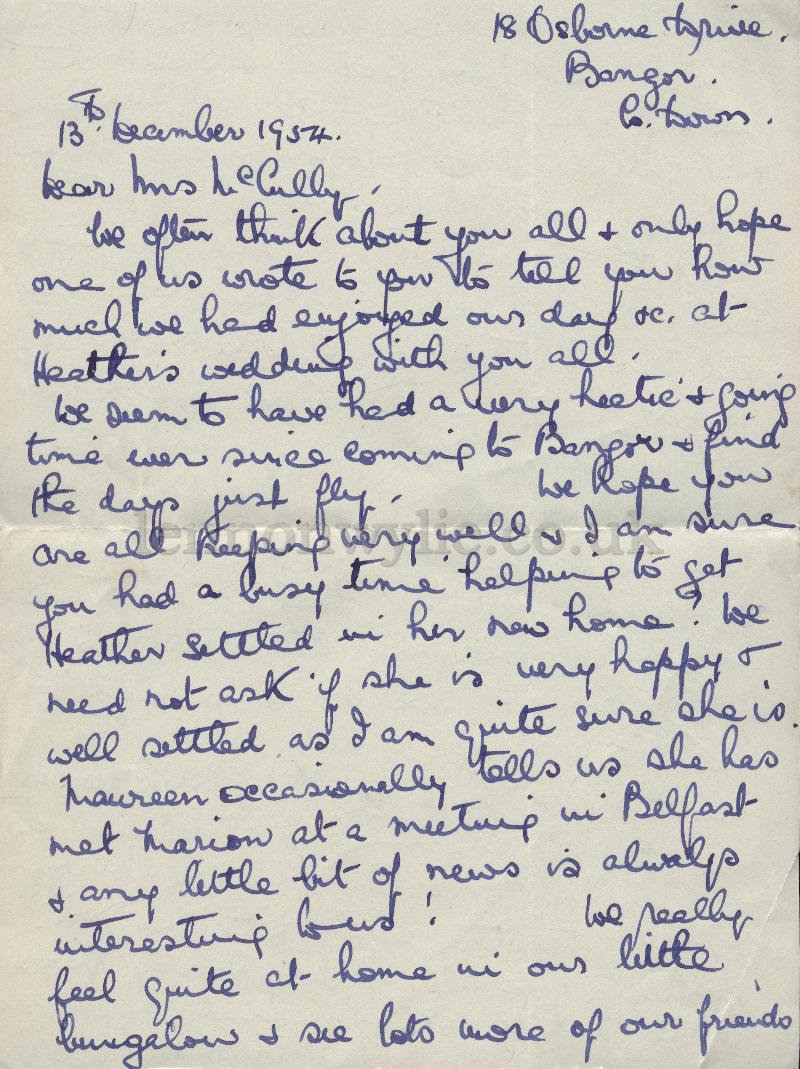 18 Osborne Drive.
Bangor.
Co. Down.
13th. December 1954.
Dear Mrs McCully,
We often think about you all & only hope
one of us wrote to you to tell you how
much we had enjoyed our day &c. at
Heather's wedding with you all.
We seem to have had a very hectic & going
time ever since coming to Bangor & find
the days just fly. We hope you
lennonwylie.co.uk
are all keeping very well & I am sure
you had a busy time helping to get
Heather settled in her new home? We
need not ask if she is very happy &
well settled as I am quite sure she is.
Maureen occasionally tells us she has
met Marion at a meeting in Belfast
& any little bit of news is always
interesting to us! We really
feel quite at home in our little
bungalow & see lots more of our friends